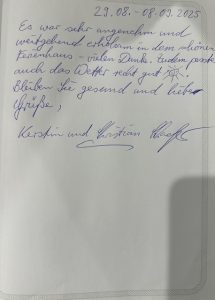 29.08. - 08.09.2025
Es war sehr angenehm und
weitgehend erholsam in dem schönen
Ferienhaus - vielen Dank. Zudem passte
auch das Wetter recht gut.
Bleiben Sie gesund und liebe
Grüße,
Kerstin und Christian